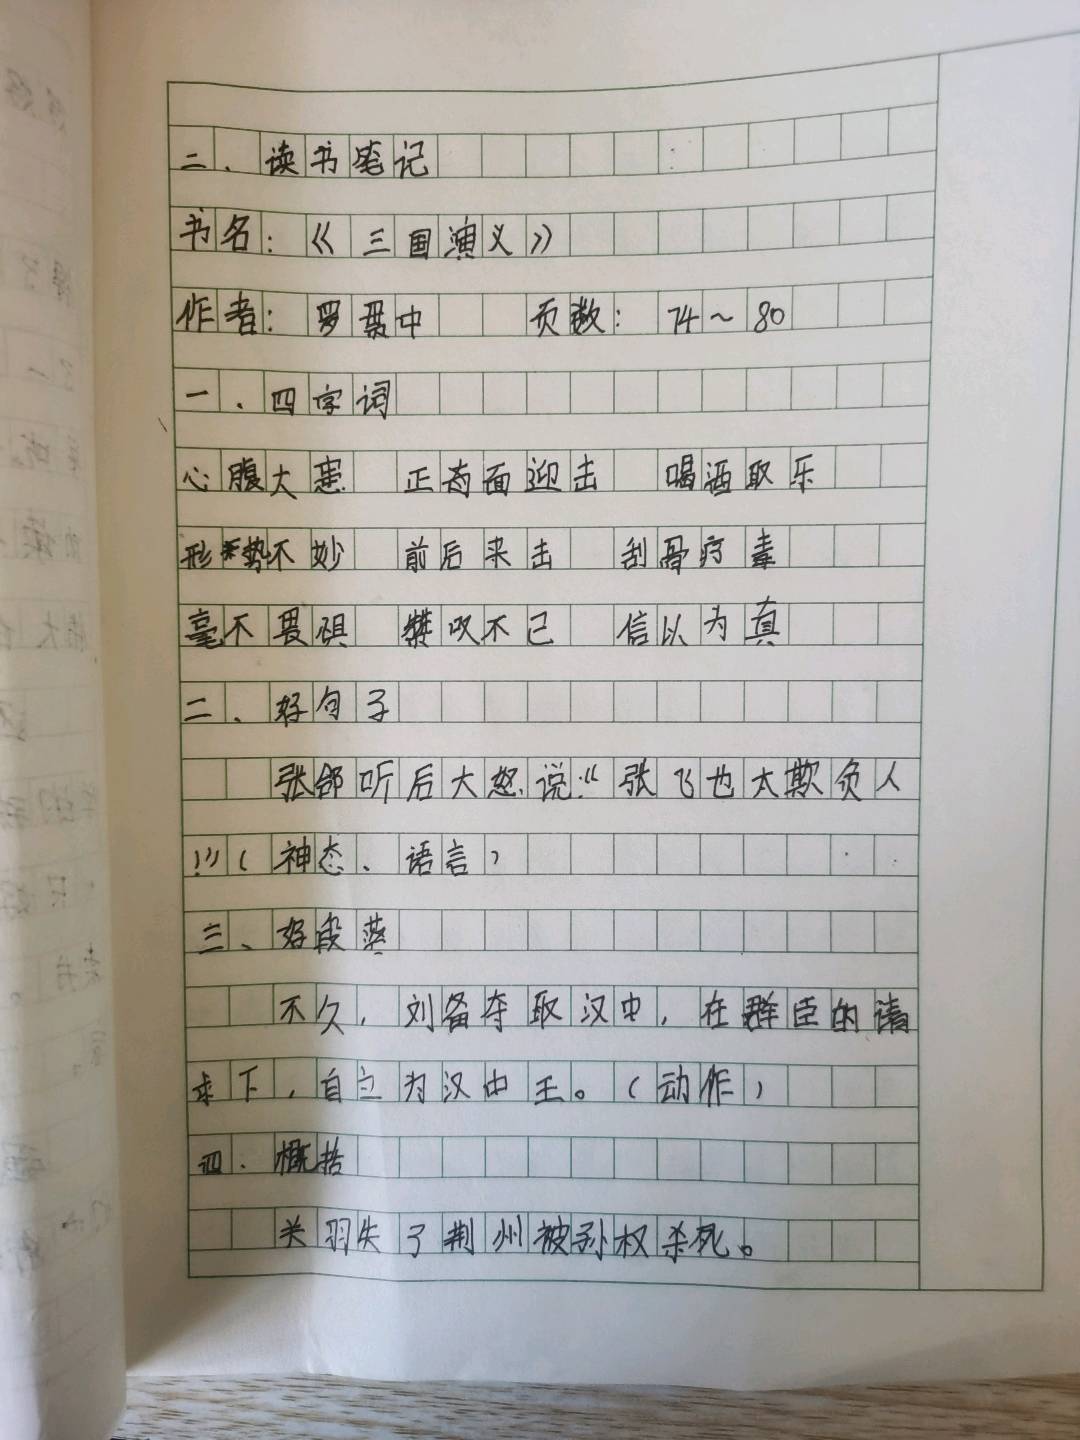 二、读书笔记
书名:《三国演义》
作者:罗贯中 页数:74~80
一、四字词
心腹大患 正面迎击 喝酒取乐
形势不妙 前后夹击 刮骨疗毒
毫不畏惧 赞叹不已 信以为真
二、好句子
张郃听后大怒说:“张飞也太欺负人
!”(神态、语言)
三、好段落
不久,刘备夺取汉中,在群臣的请
求下,自立为汉中王。(动作)
四、概括
关羽失了荆州被孙权杀死。